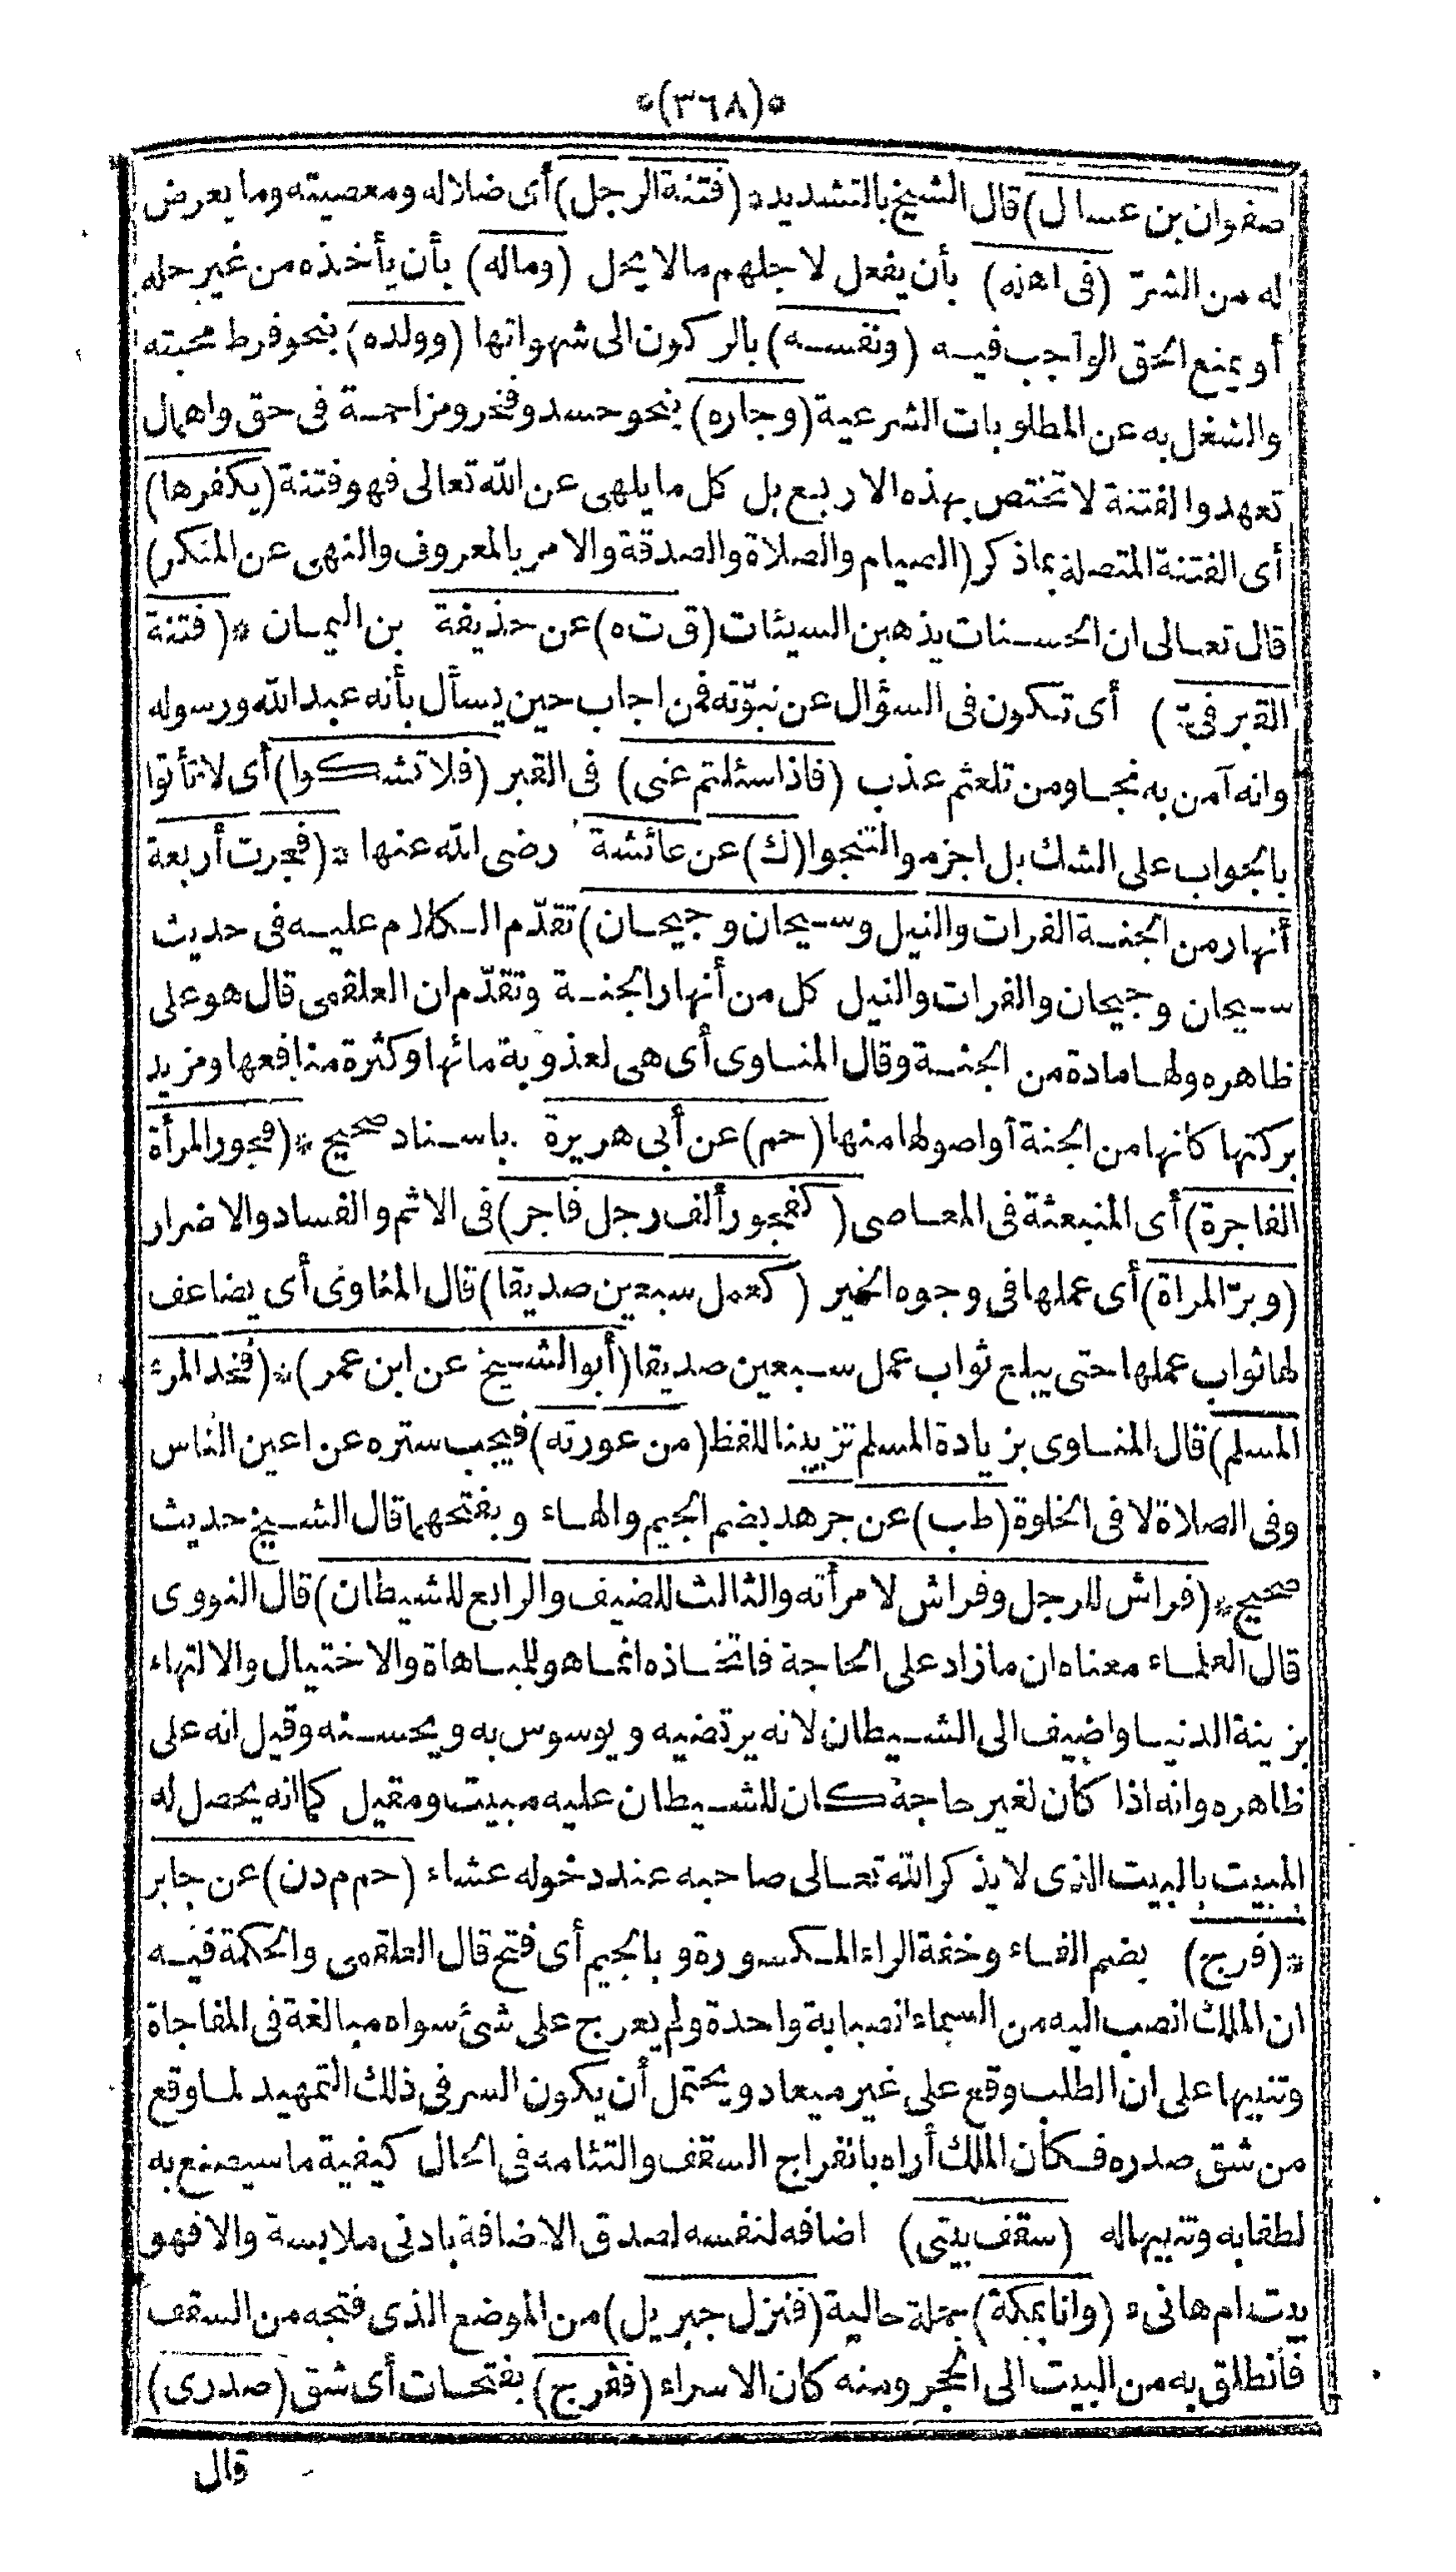 *(٣٦٨)*
صفوان بن عسال) قال الشيخ بالتشديد* (فتنة الرجل) أى ضلاله ومعصيته وما يعرض
له من الشرّ (فى اهله) بأن يفعل لاجلهم ما لا يحل (وماله) بأن يأخذه من غير حله
أو يمنع الحق الواجب فيه (ونفسه) بالركون الى شهواتها (وولده) بنحو فرط محبته
والشغل به عن المطلوبات الشرعية (وجاره) بنحو حسد وفخر ومزاحمة فى حق واهمال
تعهد والفتنة لا تختص بهذه الاربع بل كل ما يلهى عن الله تعالى فهو فتنة (يكفرها)
أى الفتنة المتصلة بماذكر (الصيام والصلاة والصدقة والامر بالمعروف والنهى عن المنكر)
قال تعالى ان الحسنات يذهبن السيئات (ق ت ه) عن حذيفة بن اليمان *(فتنة
القبر فىّ) أى تكون فى السؤال عن نبوّته فمن اجاب حين يسأل بأنه عبد الله ورسوله
وانه آمن به نجا ومن تلعثم عذب (فاذا سئلتم عنى) فى القبر (فلا تشكوا) أى لا تأتوا
بالجواب على الشك بل اجزموا لتنجوا (ك) عن عائشة رضى الله عنها *(فجرت أربعة
أنهار من الجنة الفرات والنيل وسيحان وجيحان) تقدّم الكلام عليه فى حديث
سيحان وجيحان والفرات والنيل كل من أنهار الجنة وتقدّم ان العلقمى قال هو على
ظاهره ولها مادة من الجنة وقال المناوى أى هى لعذوبة مائها وكثرة منافعها ومزيد
بركتها كانها من الجنة أو اصولها منها (حم) عن أبى هريرة باسناد صحيح *(فجور المرأة
الفاجرة) أى المنبعثة فى المعاصى (كفجور ألف رجل فاجر) فى الاثم والفساد والاضرار
(وبرّ المراة) أى عملها فى وجوه الخير (كعمل سبعين صديقا) قال المناوى أى يضاعف
لها ثواب عملها حتى يبلغ ثواب عمل سبعين صديقا (أبو الشيخ عن ابن عمر) *(فخذ المرء
المسلم) قال المناوى بزيادة المسلم تزيينا للفظ (من عورته) فيجب ستره عن اعين الناس
وفى الصلاة لا فى الخلوة (طب) عن جرهد بضم الجيم والهاء وبفتحهما قال الشيخ حديث
صحيح *(فراش للرجل وفراش لامرأته والثالث للضيف والرابع للشيطان) قال النووى
قال العلماء معناه ان ما زاد على الحاجة فاتخاذه انما هو للمباهاة والاختيال والالتهاء
بزينة الدنيا واضيف الى الشيطان لانه يرتضيه ويوسوس به ويحسنه وقيل انه على
ظاهره وانه اذا كان لغير حاجة كان للشيطان عليه مبيت ومقيل كما انه يحصل له
المبيت بالبيت الذى لا يذكر الله تعالى صاحبه عند دخوله عشاء (حم م د ن) عن جابر
*(فرج) بضم الفاء وخفة الراء المكسورة وبالجيم أى فتح قال العلقمى والحكمة فيه
ان الملك انصب اليه من السماء انصبابة واحدة ولم يعرج على شئ سواه مبالغة فى المفاجاة
وتنبيها على ان الطلب وقع على غير ميعاد ويحتمل أن يكون السر فى ذلك التمهيد لما وقع
من شق صدره فكأن الملك أراه بانفراج السقف والتئامه فى الحال كيفية ما سيصنع به
لطفا به وتنبيها له (سقف بيتى) اضافه لنفسه لصدق الاضافة بادنى ملابسة والا فهو
بيت ام هانىء (وانا بمكة) جملة حالية (فنزل جبريل) من الموضع الذى فتحه من السقف
فانطلق به من البيت الى الحجر ومنه كان الاسراء (ففرج) بفتحات أى شق (صدرى)
قال